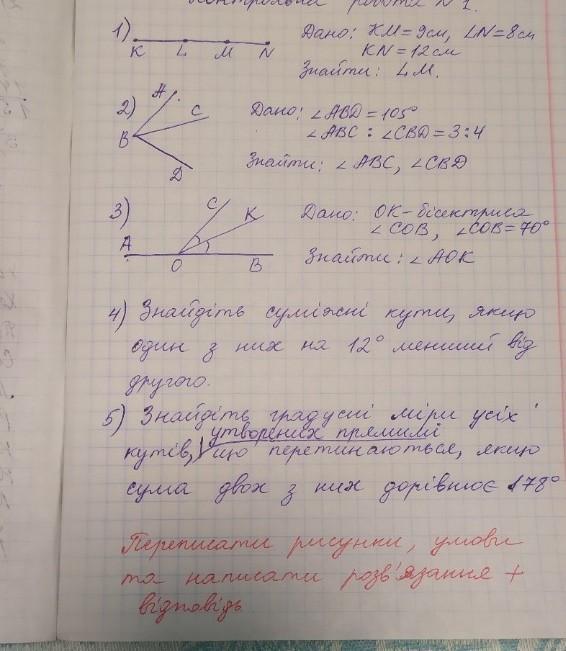 Контрольна робота №1.
1)
K L M N
Дано: KM = 9см, LN = 8см
KN = 12см
Знайти: LM.
2)
A
C
B
D
Дано: ∠ABD = 105°
∠ABC : ∠CBD = 3:4
Знайти: ∠ABC, ∠CBD
3)
C
K
A
O B
Дано: OK - бісектриса
∠COB, ∠COB = 70°
Знайти: ∠AOK
4) Знайдіть суміжні кути, якщо
один з них на 12° менший від
другого.
5) Знайдіть градусні міри усіх
утворених прямими
кутів, що перетинаються, якщо
сума двох з них дорівнює 178°
Переписати рисунки, умови
та написати розв'язання +
відповідь